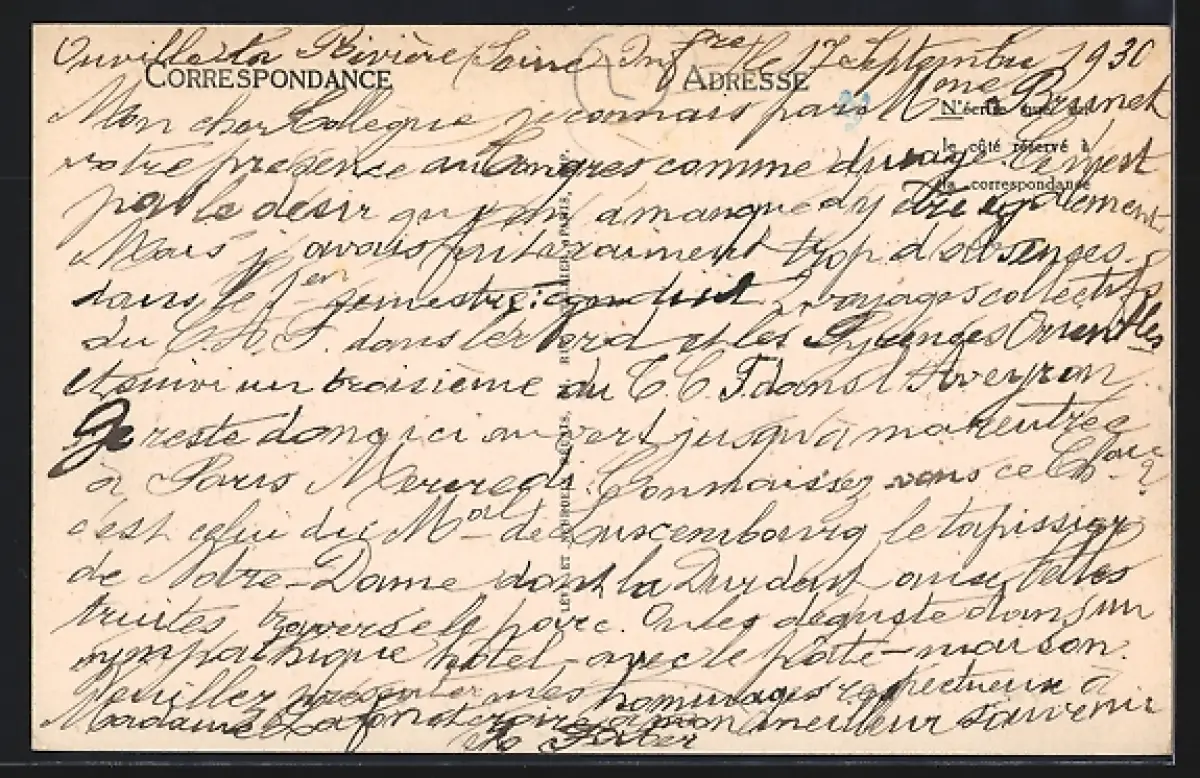 Ouville la Rivière (Seine Infre) le 17 Septembre 1930
CORRESPONDANCE
ADRESSE
N'écrire que sur
le côté réservé à
la correspondance
Mon cher Collègue je connais par Mme Brunet
votre présence au Congrès comme d'usage. Ce n'est
pas le désir qui m'en a manqué d'y être également
Mais j'avais fait vraiment trop d'absences
dans le 1er semestre: conduit 2 voyages collectifs
du C.A.F. dans le Nord et les Pyrénées Orientales
et suivi un troisième du T.C.F. dans l'Aveyron
Je reste donc ici au vert jusqu'à ma rentrée
à Paris Mercredi. Connaissez vous ce Chau
c'est celui du Mal de Luxembourg le tapissier
de Notre-Dame dont la Durdent aux belles
truites traverse le parc. On les déguste dans un
sympathique hôtel - avec le pâté-maison.
Veuillez présenter mes hommages respectueux à
Madame et croire à mon meilleur souvenir
LEVY ET NEURDEIN RÉUNIS, PARIS, IMP.